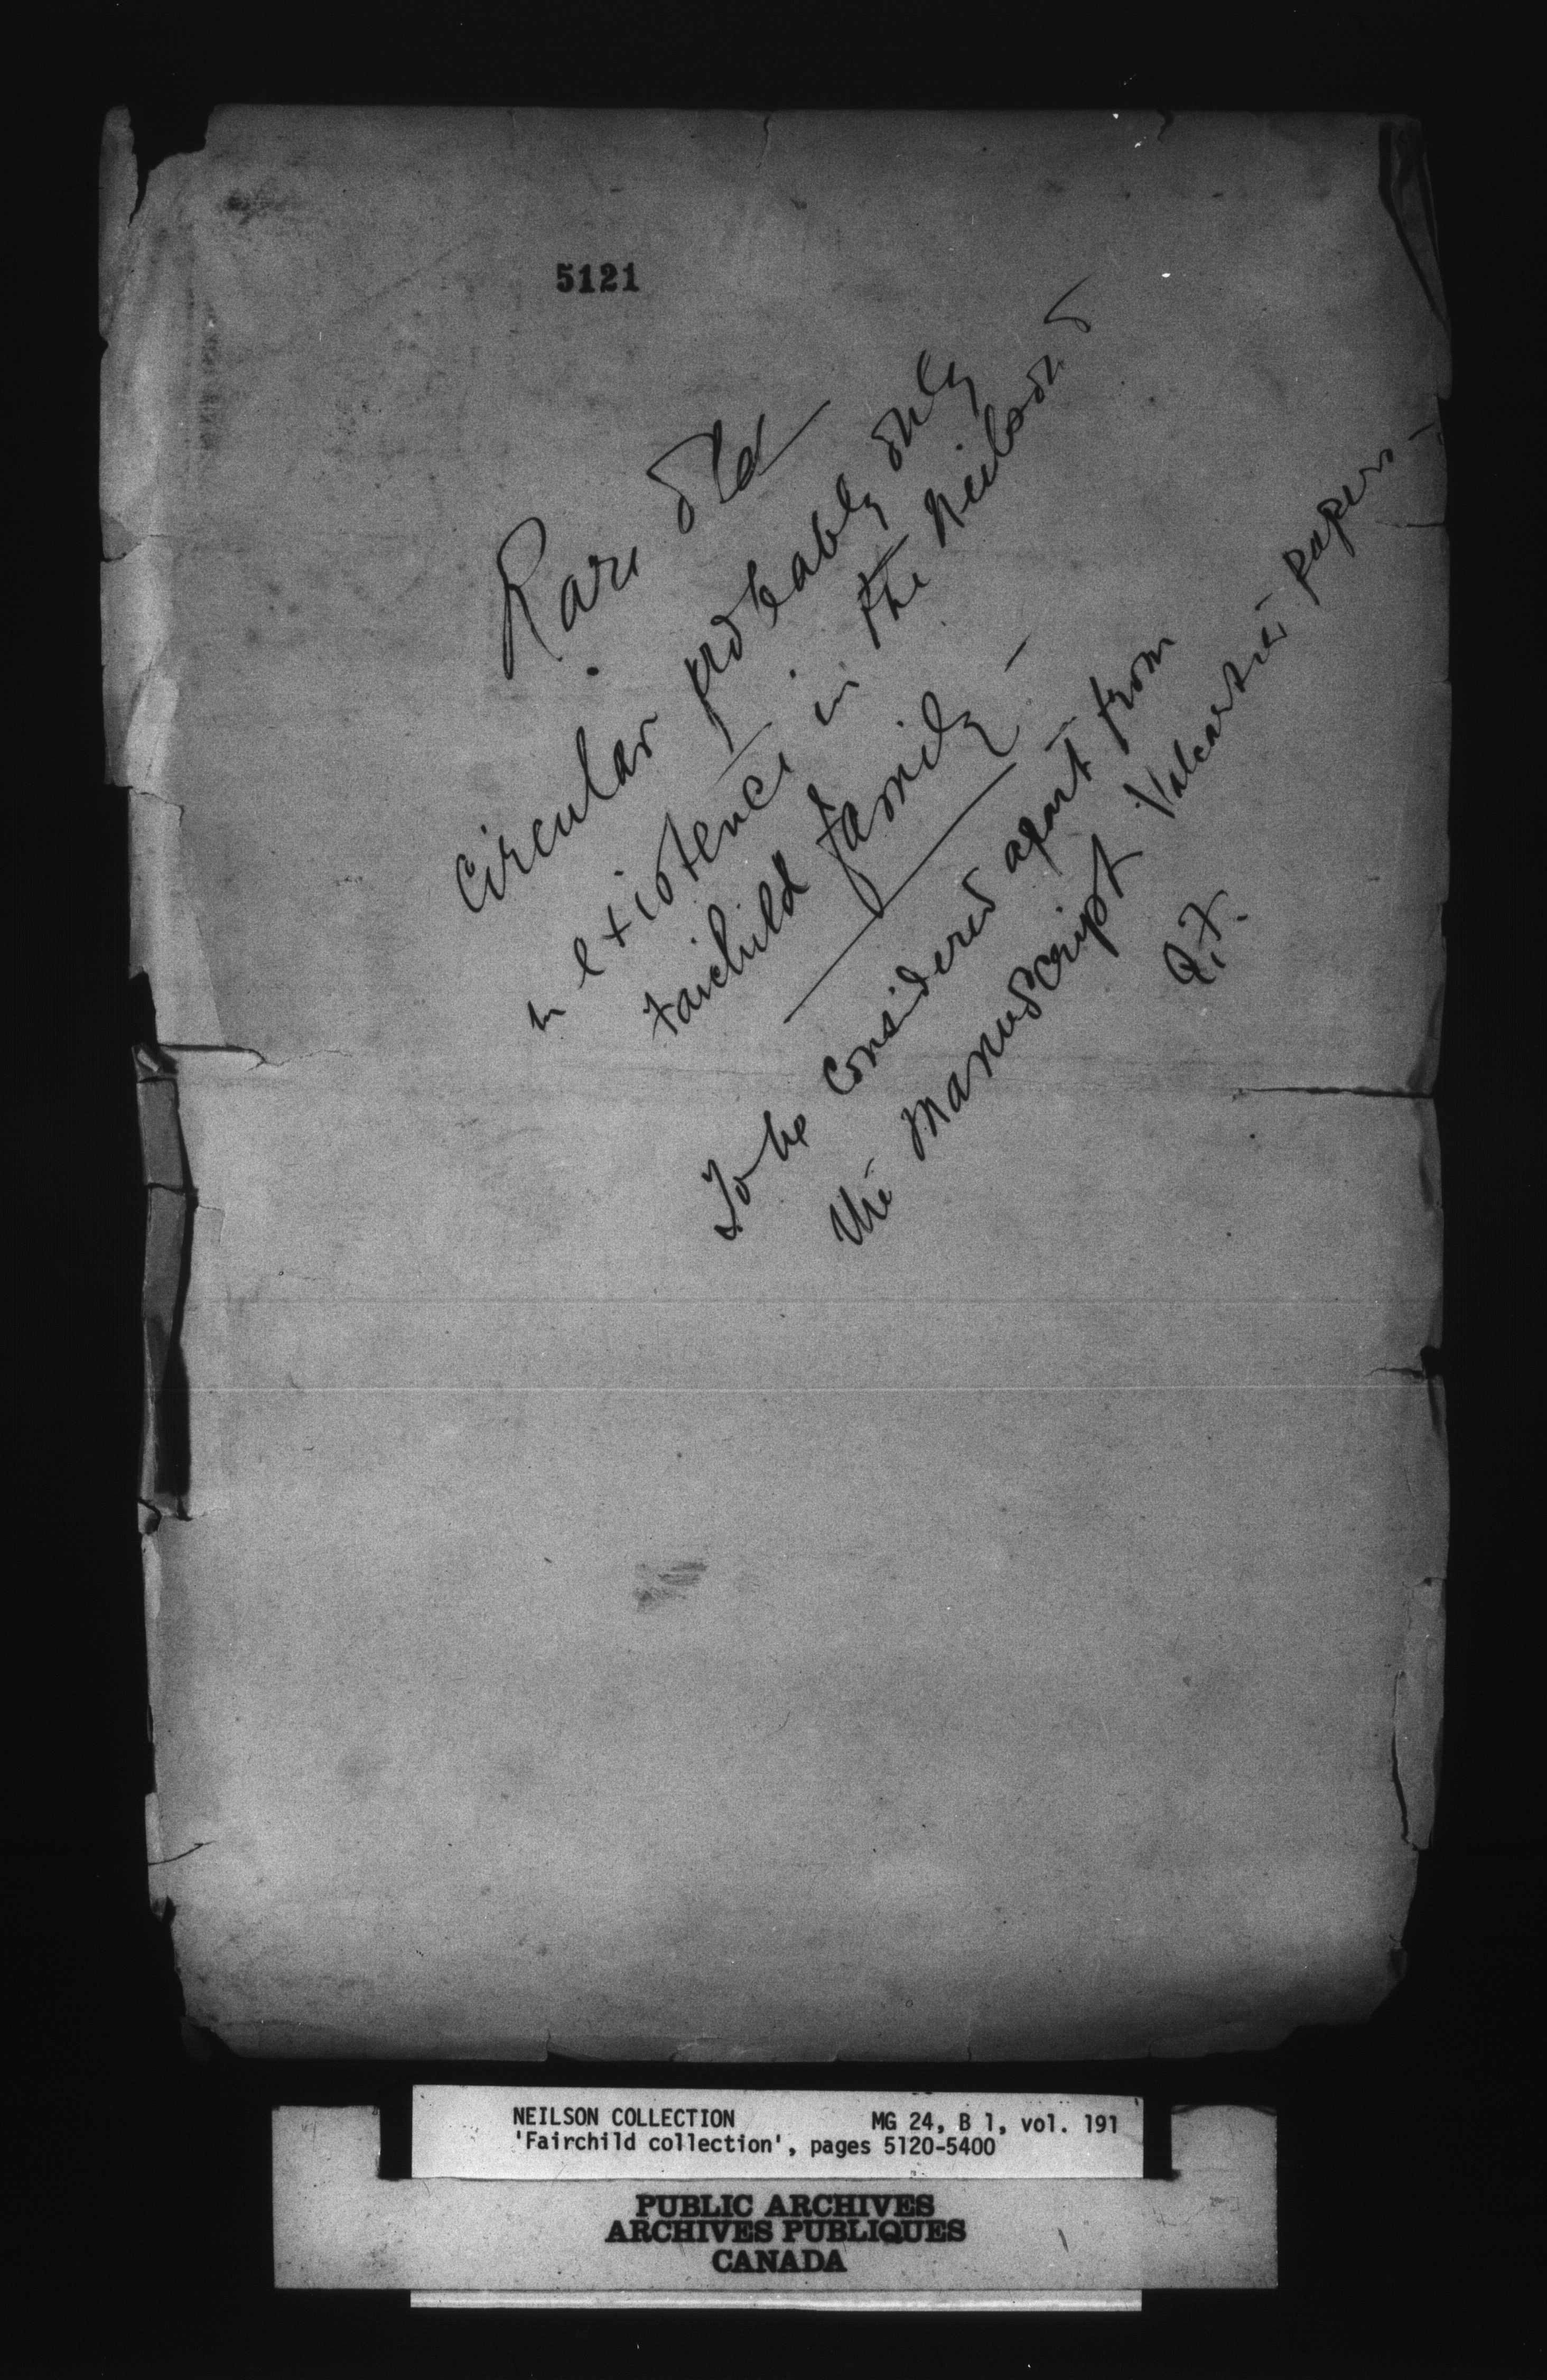 5121
Rare old
Circular probably only
in existence in the Neilson &
Fairchild family -
To be considered apart from
the manuscript Valcartier papers -
Q.F.
NEILSON COLLECTION MG 24, B 1, vol. 191
'Fairchild collection', pages 5120-5400
PUBLIC ARCHIVES
ARCHIVES PUBLIQUES
CANADA